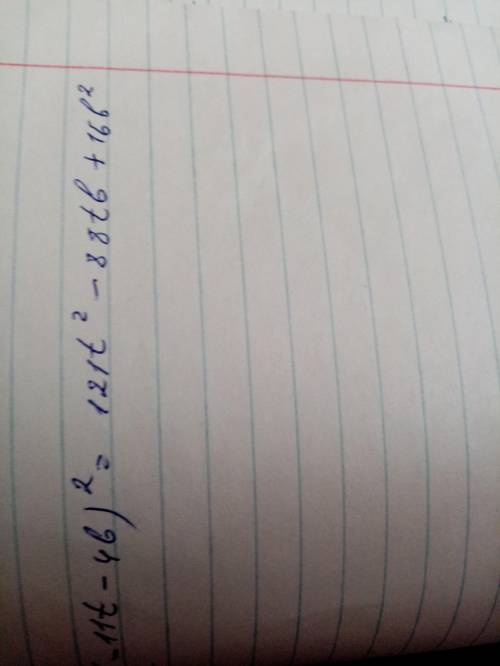 -11t - 4b)² = 121t² - 88tb + 16b²